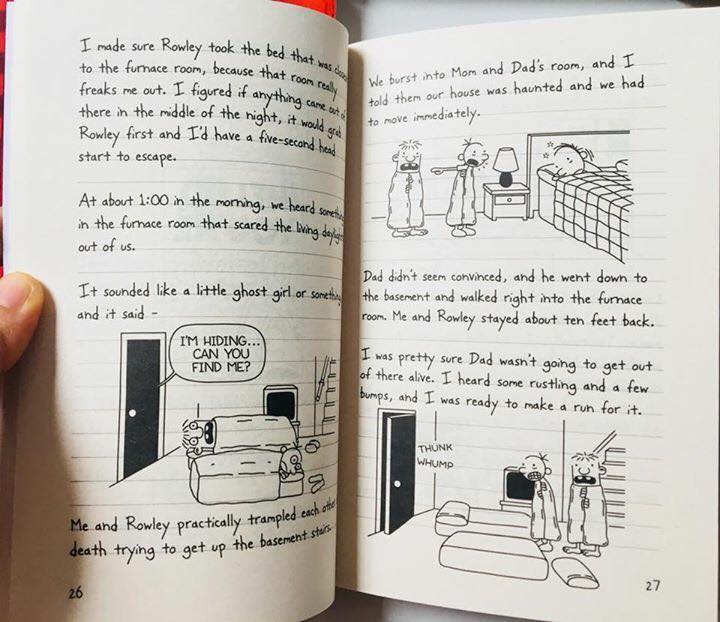 I made sure Rowley took the bed that was
to the furnace room, because that room really
freaks me out. I figured if anything came out of
there in the middle of the night, it would grab
Rowley first and I'd have a five-second head
start to escape.
At about 1:00 in the morning, we heard something
in the furnace room that scared the living daylights
out of us.
It sounded like a little ghost girl or something
and it said -
I'M HIDING...
CAN YOU
FIND ME?
Me and Rowley practically trampled each other
death trying to get up the basement stairs.
26
We burst into Mom and Dad's room, and I
told them our house was haunted and we had
to move immediately.
Dad didn't seem convinced, and he went down to
the basement and walked right into the furnace
room. Me and Rowley stayed about ten feet back.
I was pretty sure Dad wasn't going to get out
of there alive. I heard some rustling and a few
bumps, and I was ready to make a run for it.
THUNK
WHUMP
27